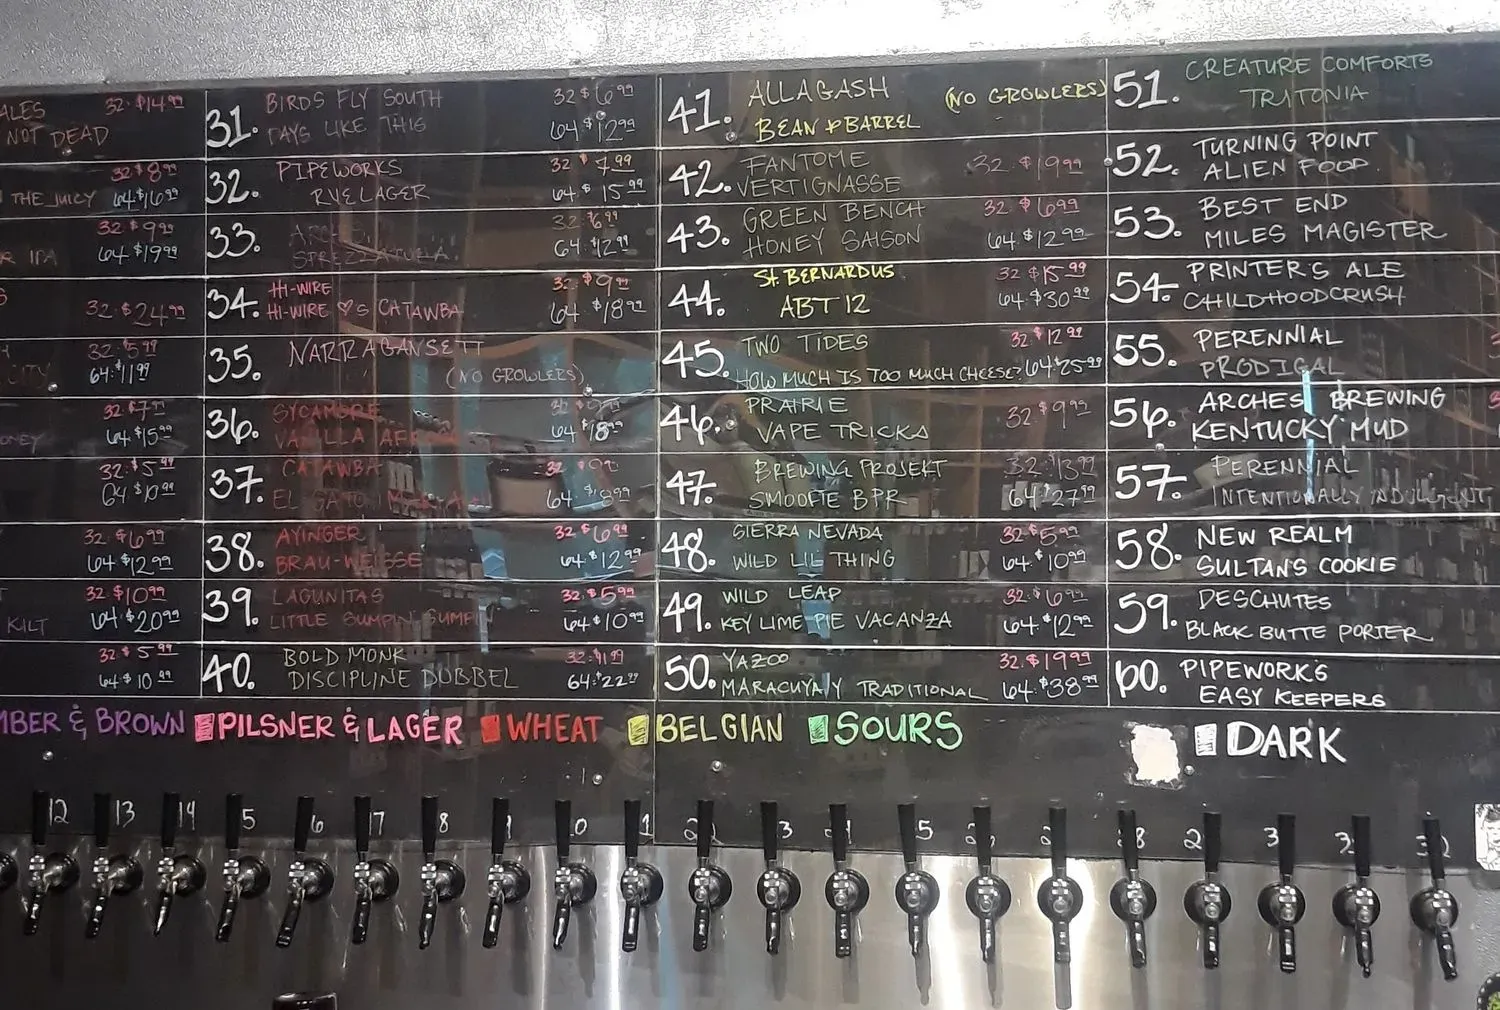 ALES 32·$14.99
NOT DEAD
32·$8.99
THE JUICY 64·$16.99
32·$9.99
IPA 64·$19.99
32·$24.99
32·$5.99
CITY 64·$11.99
32·$7.99
64·$15.99
32·$5.99
64·$10.99
32·$6.99
64·$12.99
32·$10.99
KILT 64·$20.99
32·$5.99
64·$10.99
31. BIRDS FLY SOUTH 32·$6.99
DAYS LIKE THIS 64·$12.99
32. PIPEWORKS 32·$7.99
RYE LAGER 64·$15.99
33. 32·$6.99
64·$12.99
34. HI-WIRE 32·$9.99
HI-WIRE ♡'S CATAWBA 64·$18.99
35. NARRAGANSETT
(NO GROWLERS)
36. SYCAMORE
VANILLA 64·$18.99
37. CATAWBA 32·$9.99
EL GATO 64·$18.99
38. AYINGER 32·$6.99
BRAU-WEISSE 64·$12.99
39. LAGUNITAS 32·$5.99
LITTLE SUMPIN SUMPIN 64·$10.99
40. BOLD MONK
DISCIPLINE DUBBEL 64·$22.99
41. ALLAGASH (NO GROWLERS)
BEAN & BARREL
42. FANTOME 32·$19.99
VERTIGNASSE
43. GREEN BENCH 32·$6.99
HONEY SAISON 64·$12.99
44. ST. BERNARDUS 32·$15.99
ABT 12 64·$30.99
45. TWO TIDES 32·$12.99
HOW MUCH IS TOO MUCH CHEESE? 64·$25.99
46. PRAIRIE 32·$9.99
VAPE TRICKS
47. BREWING PROJEKT 32·$13.99
SMOOFIE BPR 64·$27.99
48. SIERRA NEVADA 32·$5.99
WILD LIL THING 64·$10.99
49. WILD LEAP 32·$6.99
KEY LIME PIE VACANZA 64·$12.99
50. YAZOO 32·$19.99
MARACUYALY TRADITIONAL 64·$38.99
51. CREATURE COMFORTS
TRITONIA
52. TURNING POINT
ALIEN FOOD
53. BEST END
MILES MAGISTER
54. PRINTER'S ALE
CHILDHOODCRUSH
55. PERENNIAL
PRODIGAL
56. ARCHES BREWING
KENTUCKY MUD
57. PERENNIAL
INTENTIONALLY INDULGENT
58. NEW REALM
SULTANS COOKIE
59. DESCHUTES
BLACK BUTTE PORTER
60. PIPEWORKS
EASY KEEPERS
& BROWN PILSNER & LAGER WHEAT BELGIAN SOURS DARK
12 13 14